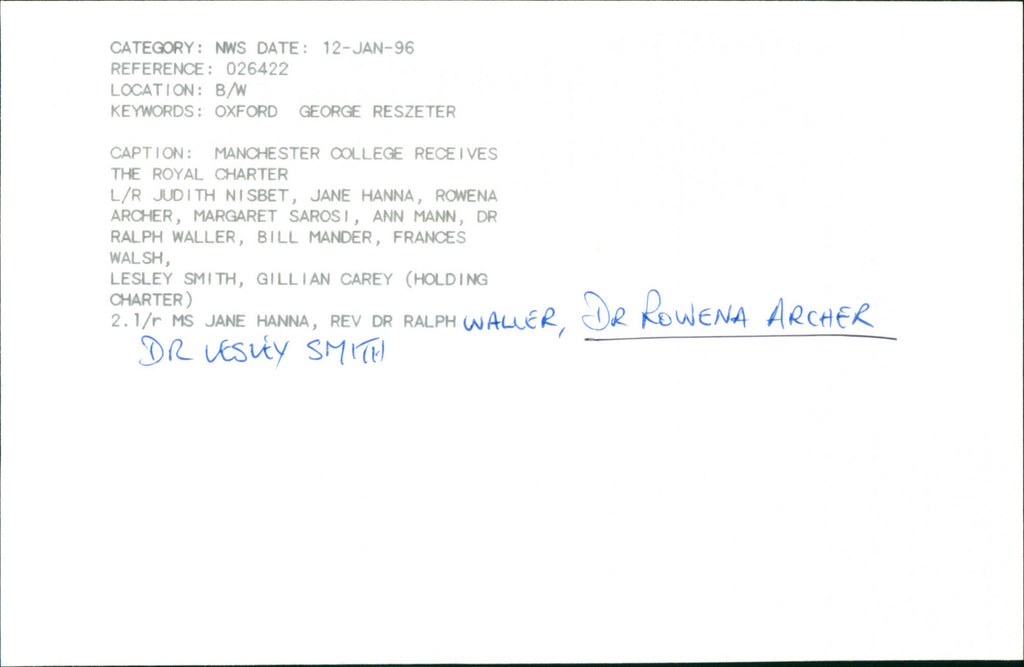 CATEGORY: NWS DATE: 12-JAN-96
REFERENCE: 026422
LOCATION: B/W
KEYWORDS: OXFORD GEORGE RESZETER
CAPTION: MANCHESTER COLLEGE RECEIVES
THE ROYAL CHARTER
L/R JUDITH NISBET, JANE HANNA, ROWENA
ARCHER, MARGARET SAROSI, ANN MANN, DR
RALPH WALLER, BILL MANDER, FRANCES
WALSH,
LESLEY SMITH, GILLIAN CAREY (HOLDING
CHARTER)
2.l/r MS JANE HANNA, REV DR RALPH WALLER, DR ROWENA ARCHER
DR LESLEY SMITH